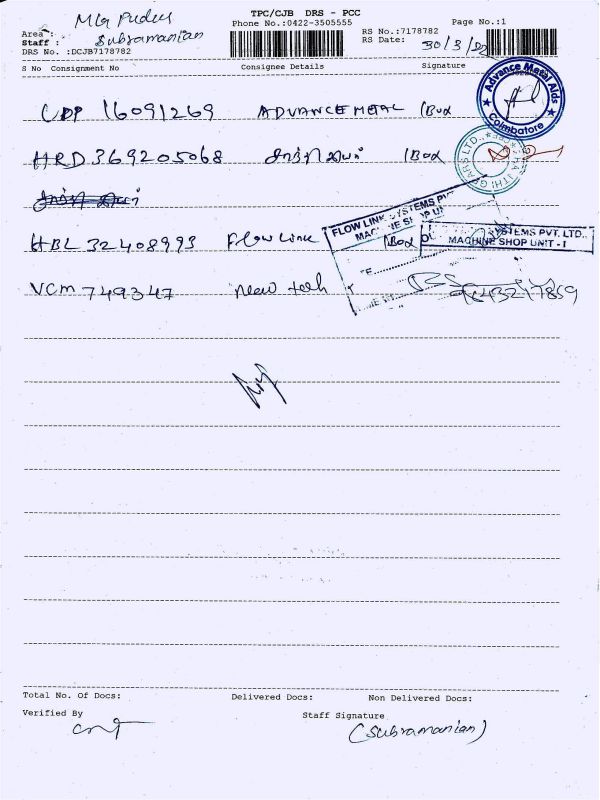 TPC/CJB DRS - PCC
Phone No.:0422-3505555
Page No.:1
Area :
Staff : Subramanian
RS No.:7178782
DRS No. :DCJB7178782
RS Date: 30/3/22
S No Consignment No Consignee Details Signature
CDP 16091269 ADVANCE METAL 1Box
Advance Metal Aids
Coimbatore
HRD 369205068 சாந்தி கியர் 1Box
SHANTHI GEARS LTD.,
HBL 32408993 Flow Link 1Box
FLOW LINK SYSTEMS PVT
MACHINE SHOP UNIT
SYSTEMS PVT. LTD.,
MACHINE SHOP UNIT - I
VCM 749347 New tech
Total No. Of Docs: Delivered Docs: Non Delivered Docs:
Verified By Staff Signature
(Subramanian)